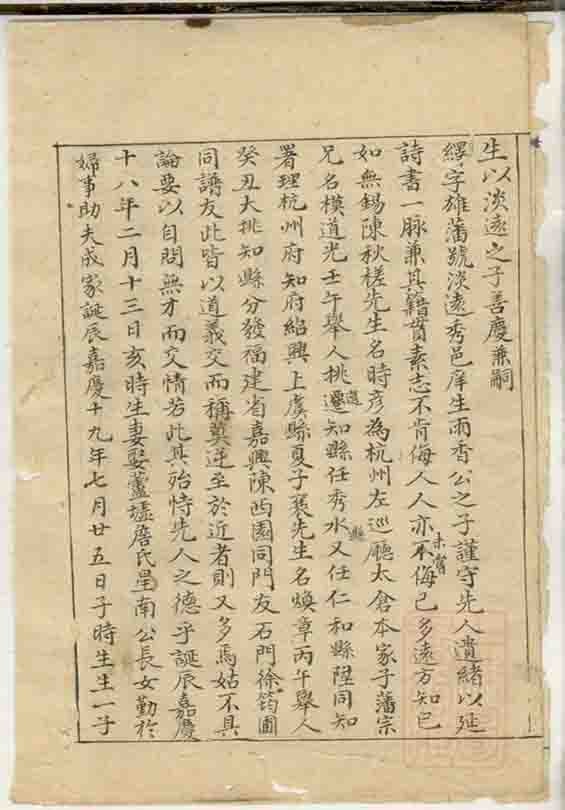 生以淡遠之子善慶兼嗣
字雄藩號淡遠秀邑庠生雨香公之子謹守先人遺緒以延
詩書一脉兼其籍貫素志不肯侮人人亦不未嘗侮己多遠方知己
如無錫陳秋槎先生名時彦為杭州左巡廳太倉本家子藩宗
兄名模道光壬午舉人挑選知縣任秀水縣又任仁和縣陞同知
署理杭州府知府紹興上虞縣夏子襄先生名煥章丙午舉人
癸丑大挑知縣分發福建省嘉興陳西園同門友石門徐筠圃
同譜友此皆以道義交而稱莫逆至於近者則又多焉姑不具
論要以自問無才而交情若此其殆恃先人之德乎誕辰嘉慶
十八年二月十三日亥時生妻娶蘆墟唐氏星南公長女勤於
婦事助夫成家誕辰嘉慶十九年七月廿五日子時生生一子